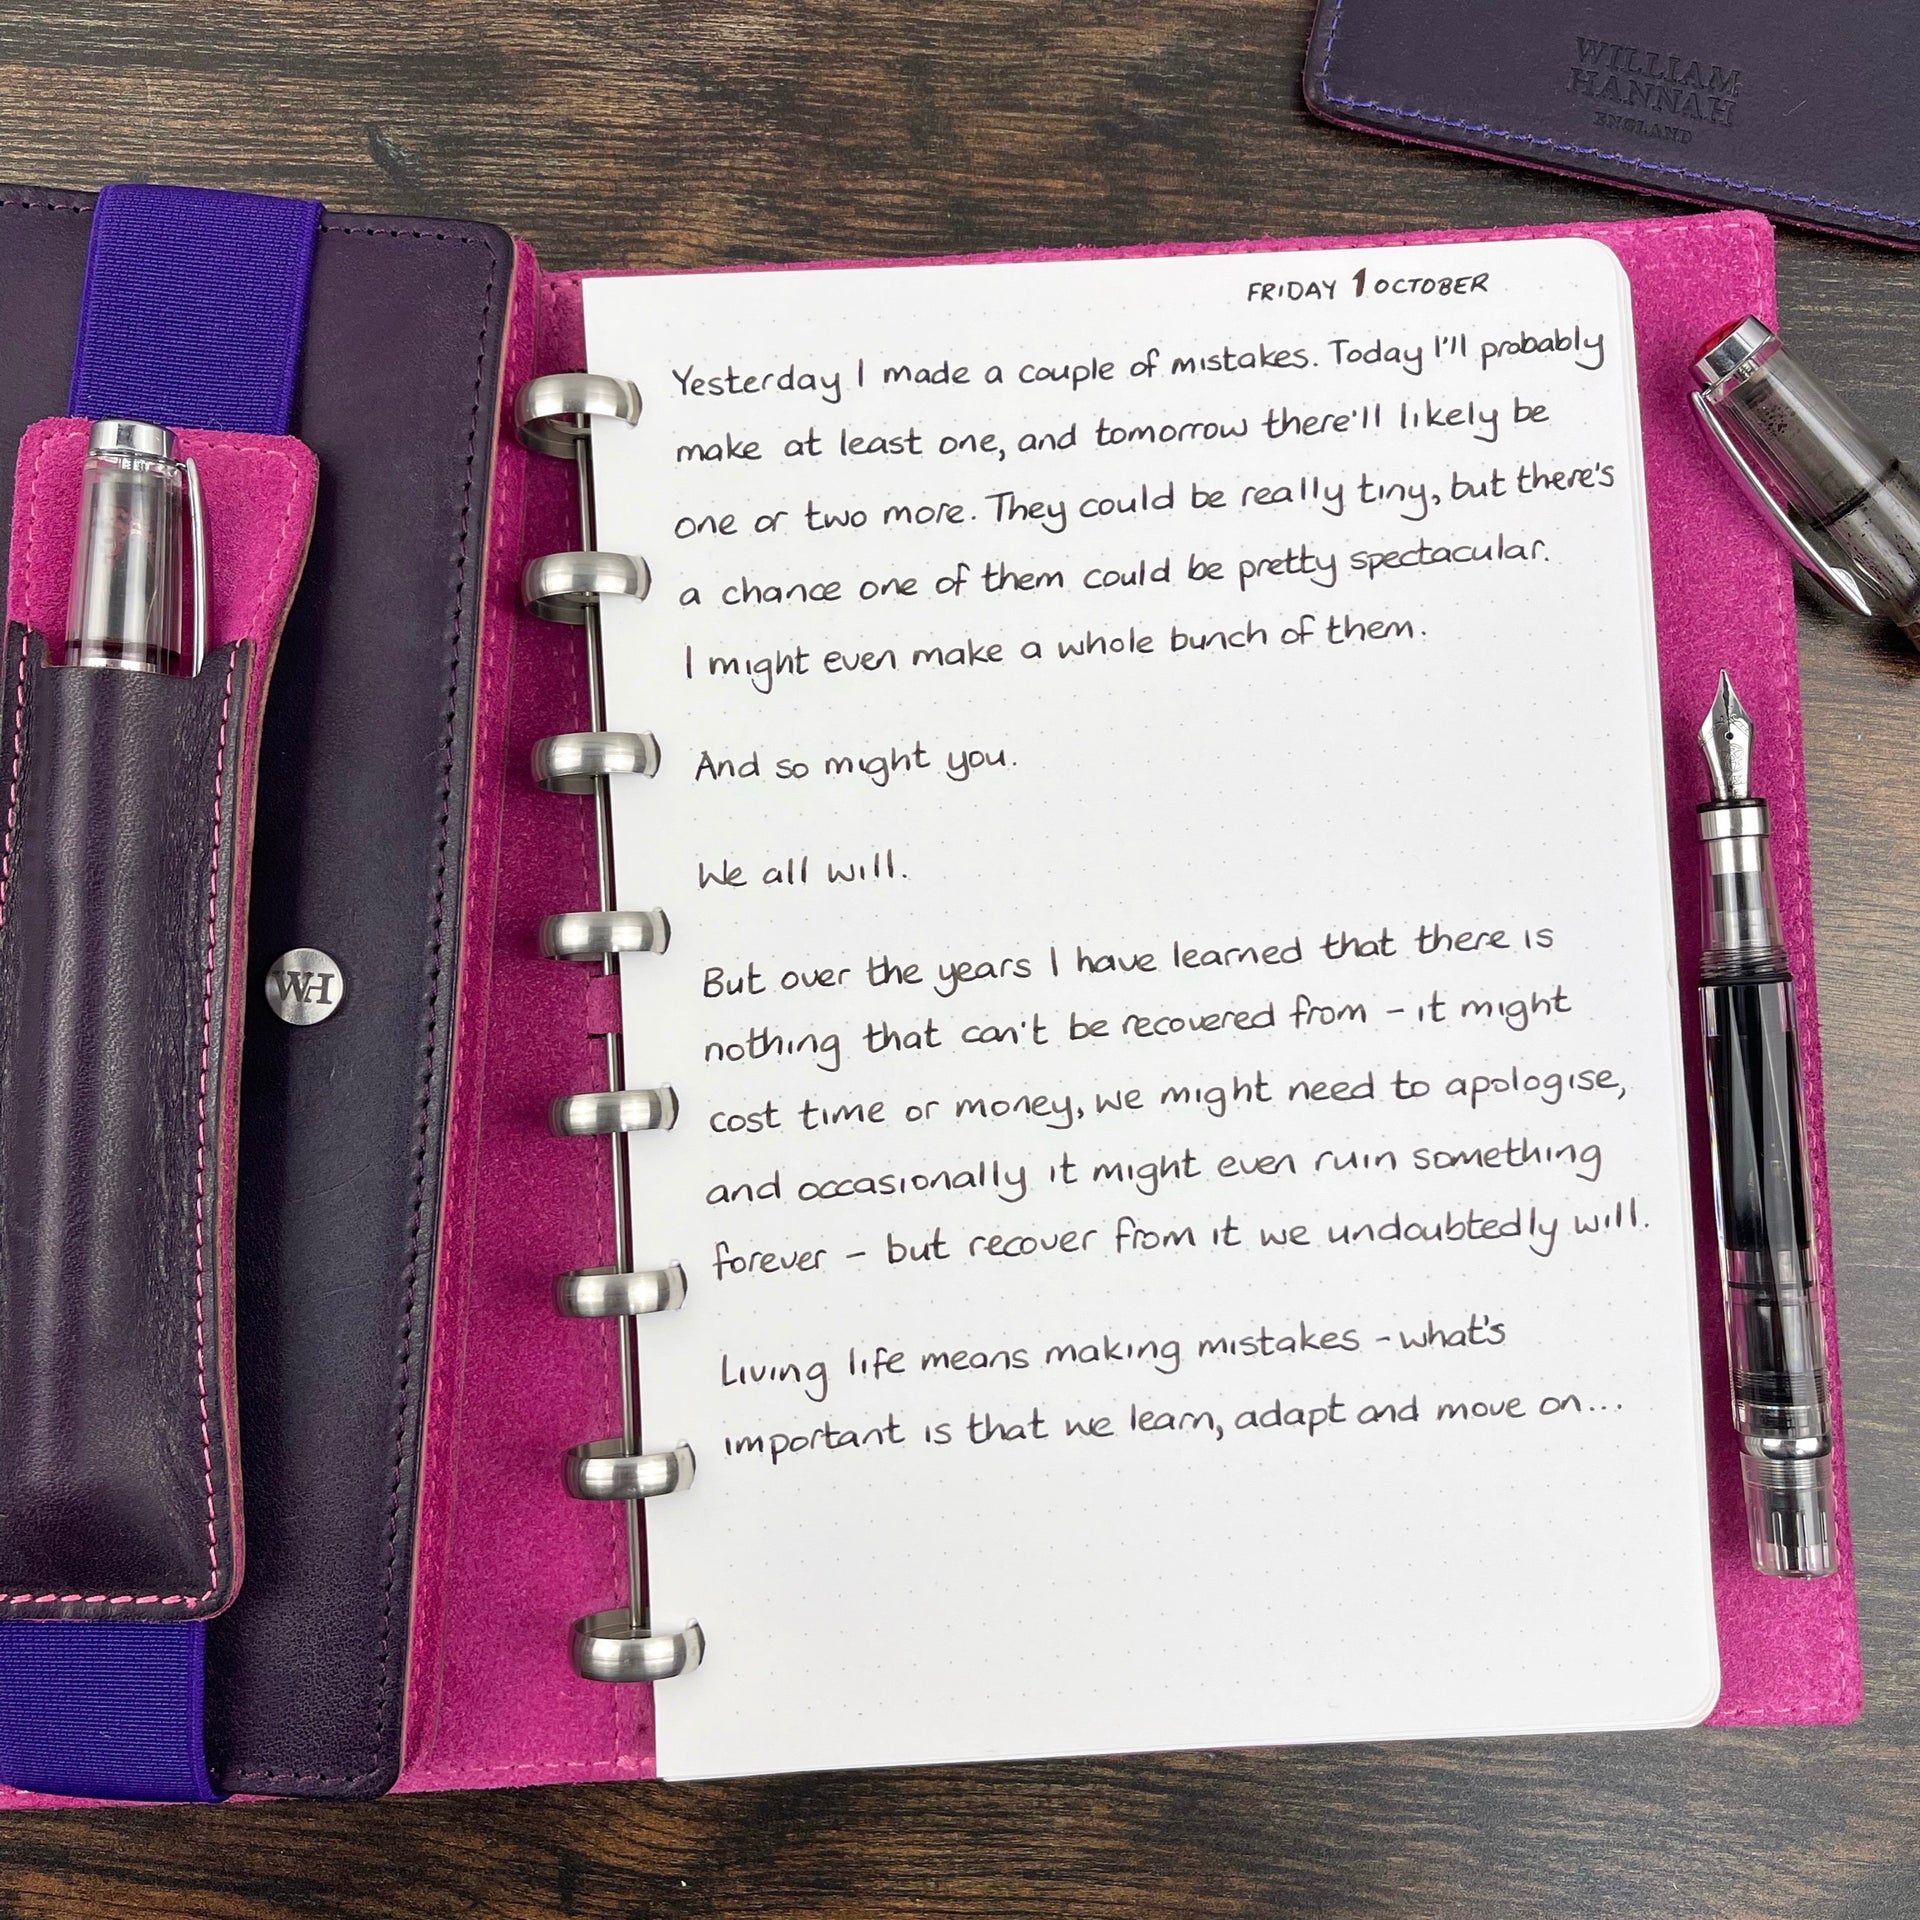 WILLIAM
HANNAH
ENGLAND
FRIDAY 1 OCTOBER
Yesterday I made a couple of mistakes. Today I'll probably
make at least one, and tomorrow there'll likely be
one or two more. They could be really tiny, but there's
a chance one of them could be pretty spectacular.
I might even make a whole bunch of them.
And so might you.
We all will.
But over the years I have learned that there is
nothing that can't be recovered from – it might
cost time or money, we might need to apologise,
and occasionally it might even ruin something
forever – but recover from it we undoubtedly will.
Living life means making mistakes – what's
important is that we learn, adapt and move on...
WH